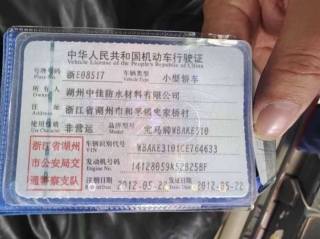 中华人民共和国机动车行驶证
Vehicle License of the People's Republic of China
号牌号码 浙E08517 车辆类型 小型轿车
Plate No. Vehicle Type
所有人 湖州中佳防水材料有限公司
Owner
住址 浙江省湖州市和孚镇史家桥村
Address
使用性质 非营运 品牌型号 宝马牌WBAKE310
Use Character Model
浙江省湖州 车辆识别代号 WBAKE3101CE764633
VIN
市公安局交 发动机号码 14128059N52B25BF
Engine No.
通警察支队 注册日期 2012-05-22 发证日期 2012-05-22